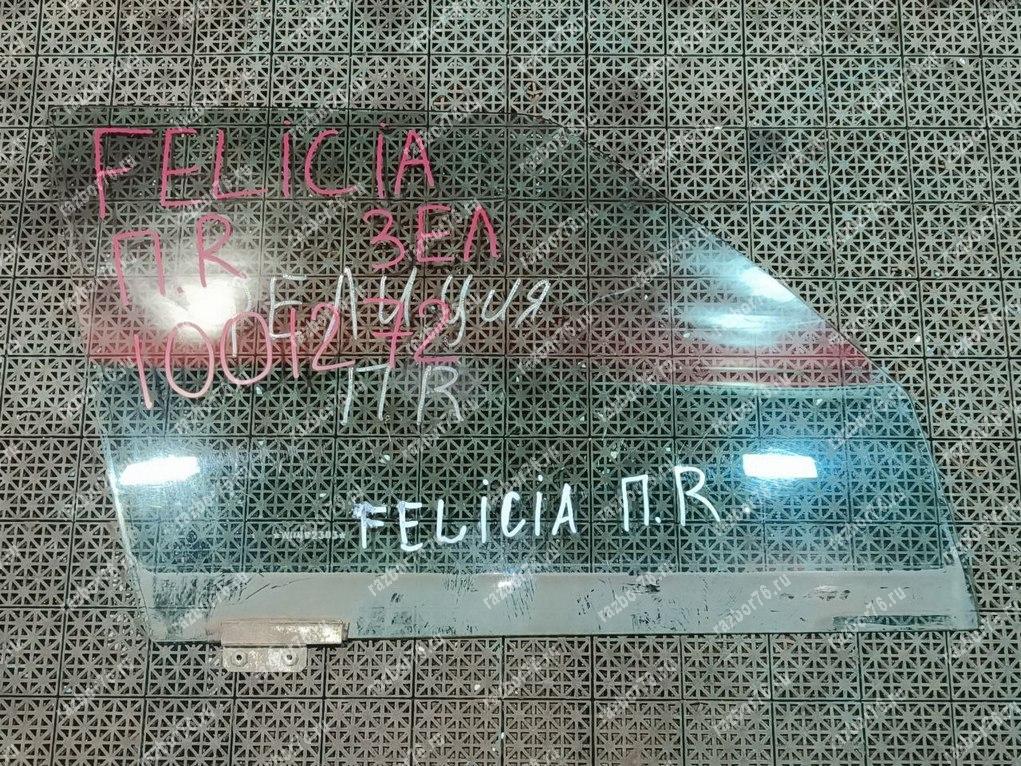 FELICIA
П.R ЗЕЛ
ФЕЛИЦИЯ
1004272
ПR
FELICIA П.R
razbor76.ru